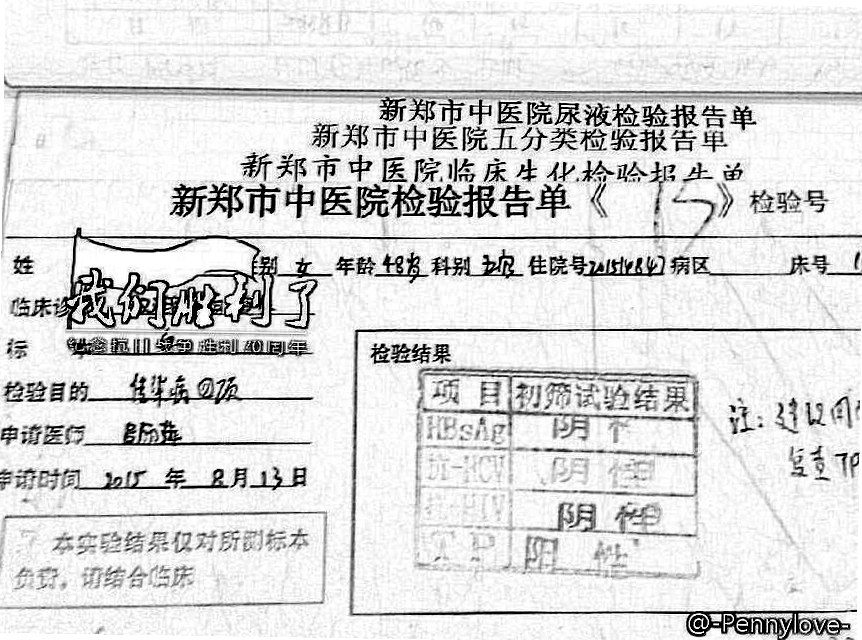 新郑市中医院尿液检验报告单
新郑市中医院五分类检验报告单
新郑市中医院临床生化检验报告单
新郑市中医院检验报告单《15》检验号
姓 别 女 年龄 48岁 科别 住院号 病区 床号
临床诊
我们胜利了
纪念抗日战争胜利70周年
标
检验目的 传染病四项
申请医师
申请时间 2015 年 8 月 13 日
本实验结果仅对所测标本
负责,请结合临床
检验结果
项目 初筛试验结果
HBsAg 阴性
抗-HCV 阴性
抗-HIV 阴性
TP 阴性
注:建议
复查TP
@-Pennylove-